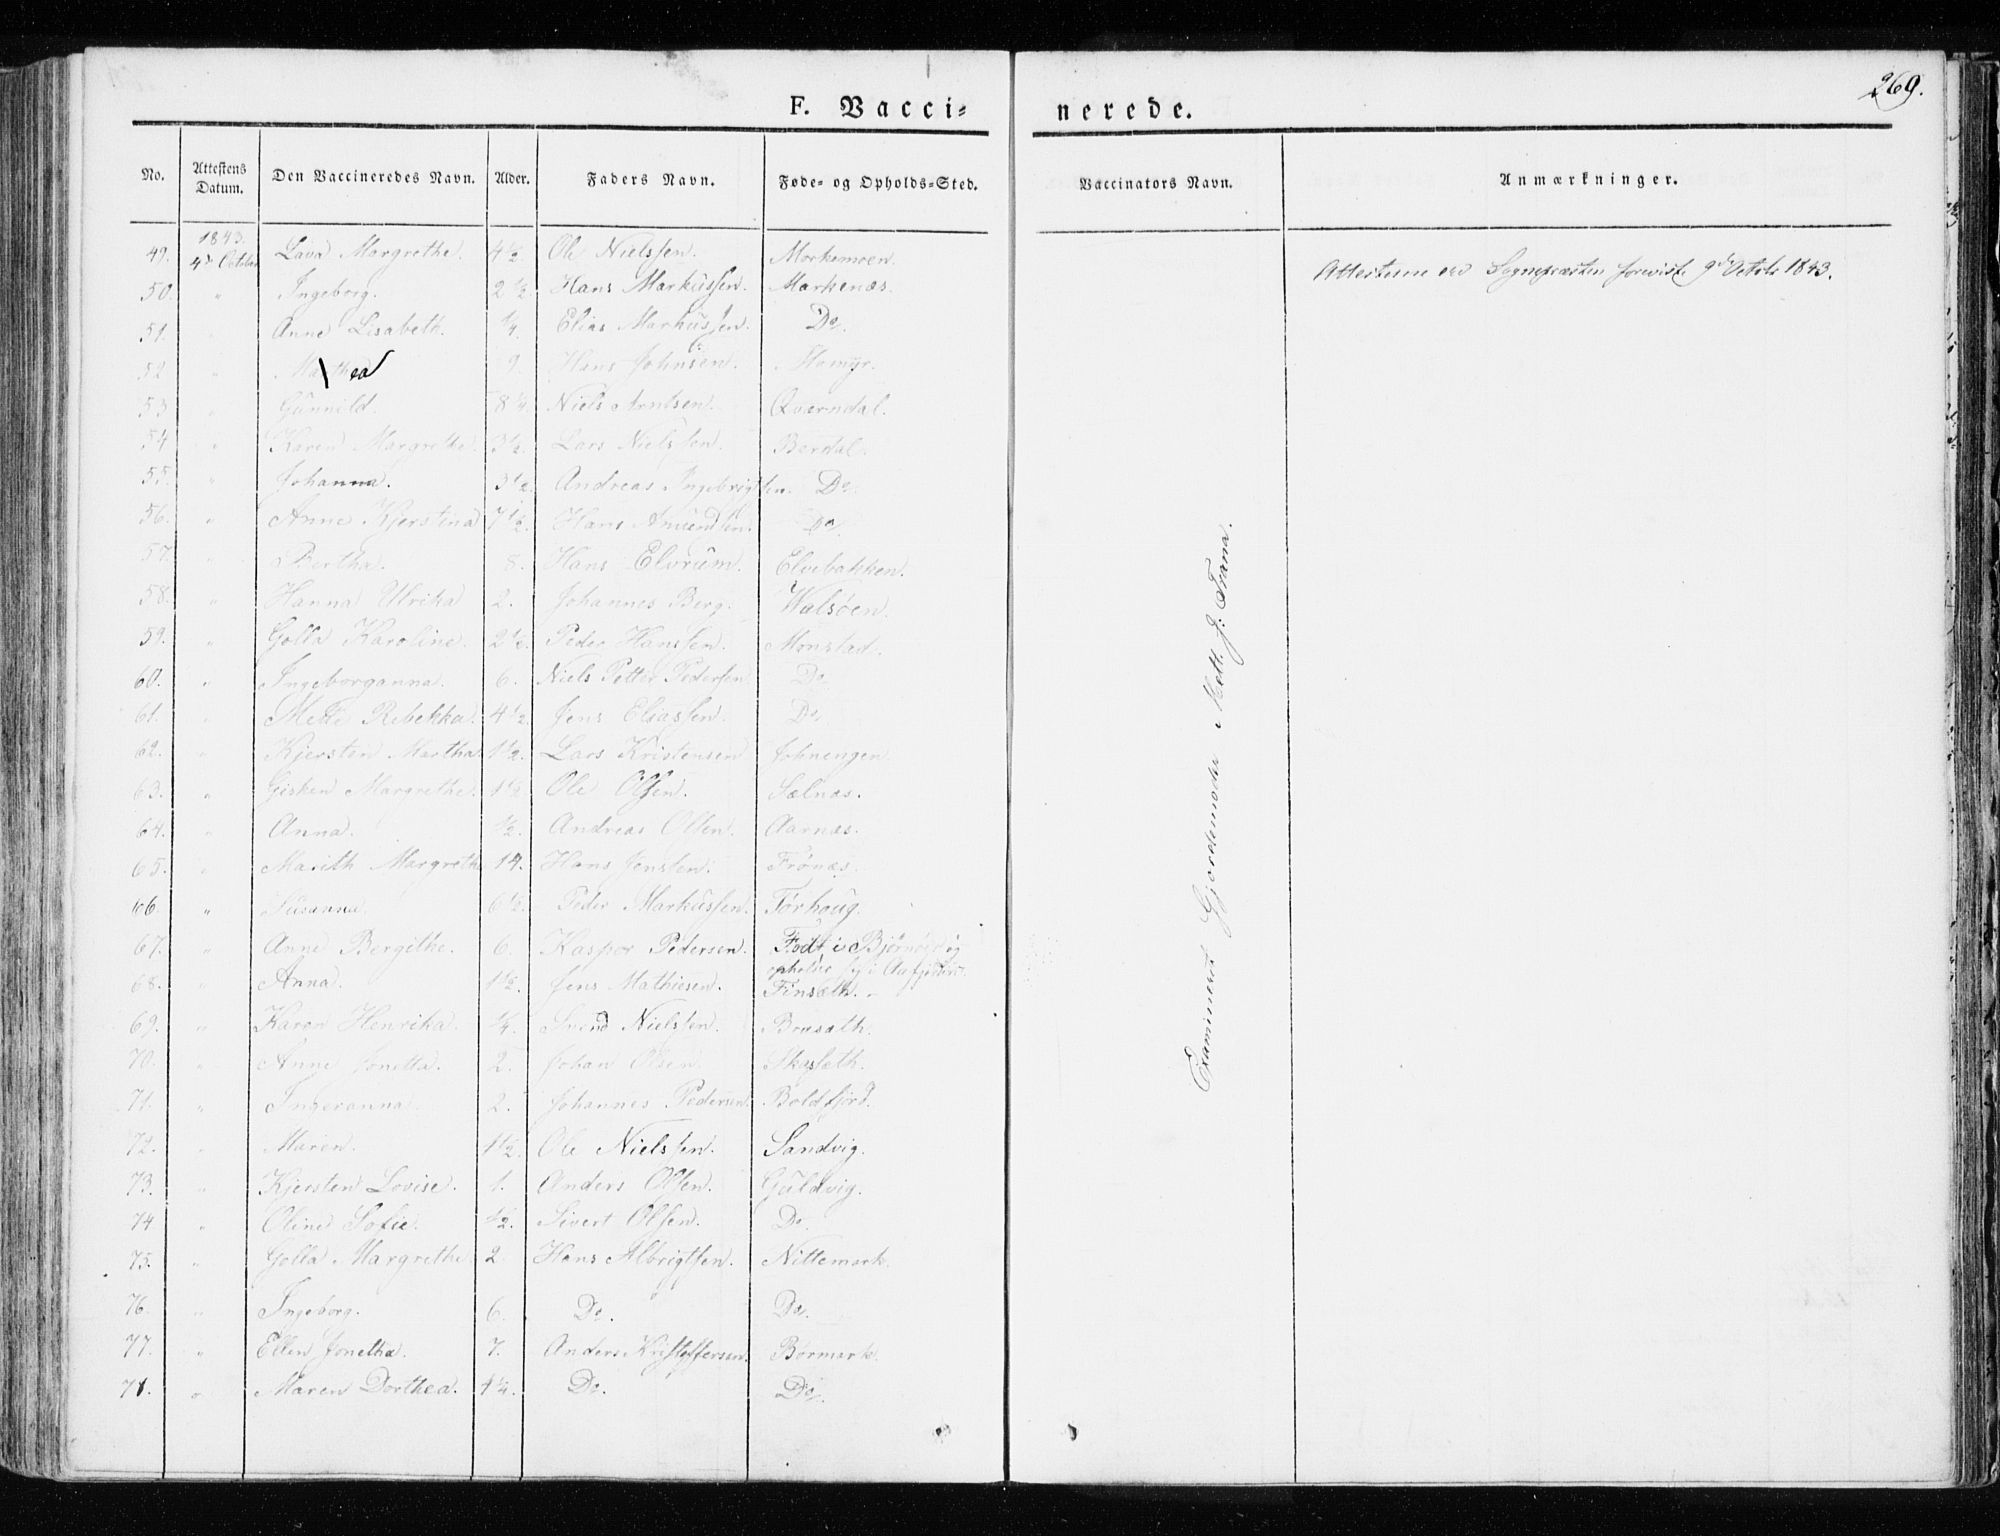 269.
F. Vacci=nerede.
No. Attestens Datum. Den Vaccineredes Navn. Alder. Faders Navn. Føde- og Opholds-Sted. Vaccinators Navn. Anmærkninger.
1843.
49. 4de October Lava Margrethe. 4½ Ole Nielssen. Morkemoen. Attesterne ved Sognepræsten foreviste 9de Octobr 1843.
50. " Ingeborg. 2½ Hans Markussen. Markenæs.
51. " Anne Lisabeth. ¼. Elias Markussen. Do.
52 " Mathea 9. Hans Johnsen. Homyr.
53 " Gunnild. 8¼. Niels Arntsen. Qverndal.
54. " Karen Margrethe. 3½. Lars Nielssen. Berdal.
55. " Johanna. 3½. Andreas Ingebrigtsen. Do.
56. " Anne Kjerstina 7½. Hans Amundsen. Do.
57. " Bertha. 8. Hans Elvrum. Elvebakken.
58. " Hanna Ulrika 2. Johannes Berg. Walsöen.
59. " Golla Karoline. 2½. Peder Hanssen. Monstad.
60. " Ingeborganna. 6. Niels Petter Pedersen Do
61. " Mette Rebekka. 4½. Jens Eliassen. Do.
62. " Kjersten Martha 1½. Lars Kristensen
63. " Gisken Margrethe. 1½ Ole Olsen. Selnæs.
64. " Anna. ½. Andreas Olsen. Aarnæs.
65. " Marith Margrethe 14. Hans Jensen. Frönæs.
66. " Susanna. 6½. Peder Markussen. Tørhoug.
67. " Anne Bergithe. 6. Kasper Pedersen. Född i Bjørnöer og
opholder sig i Aafjorden.
68. " Anna. 1½. Jens Mathiesen. Finsæth.
69. " Karen Henrika. ¼. Svend Nielssen. Bræsæth.
70. " Anne Jonetta. 2. Johan Olsen. Skaseth.
71. " Ingeranna. 2. Johannes Pedersen. Boldfjord.
72. " Maren. 1½. Ole Nielssen. Sandvig.
73. " Kjersten Lovise. 1. Anders Olsen. Guldvig.
74 " Oline Sofie. ½. Sivert Olsen. Do.
75. " Golla Margrethe. 2. Hans Albrigtsen. Nittemark.
76. " Ingeborg. 6. Do. Do.
77. " Ellen Jonetha. 7. Anders Kristoffersen. Børmark.
78. " Maren Dorthea. 1¼. Do. Do.
Examineret Gjordemoder Mett. J. Frana.